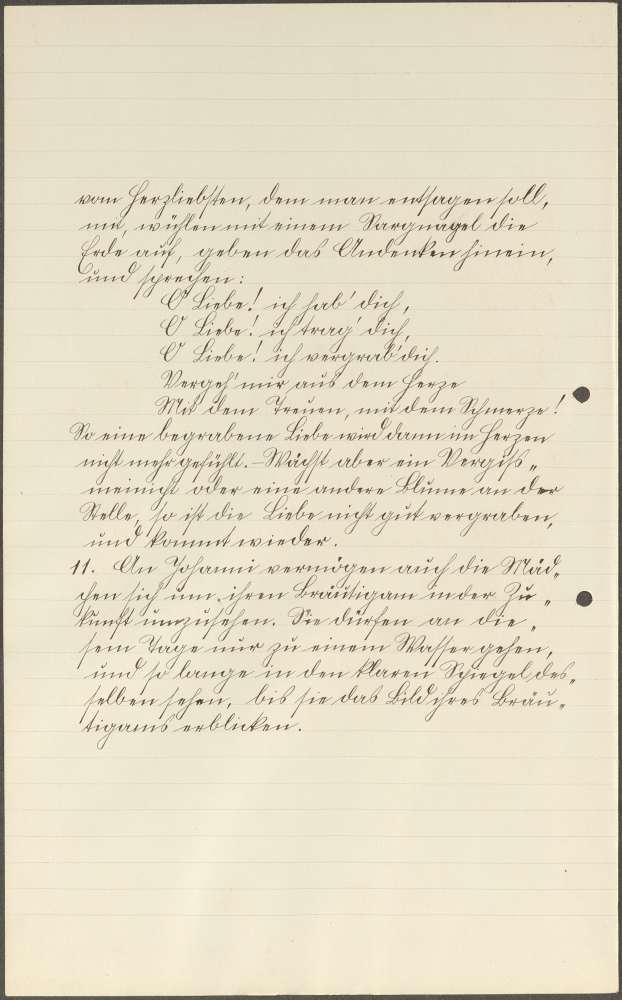 vom Herzliebsten, dem man entsagen soll,
um, wühlen mit einem Sargnagel die
Erde auf, geben das Andenken hinein,
und sprechen:
O Liebe! ich hab' dich,
O Liebe! ich trag' dich,
O Liebe! ich vergrab' dich.
Vergeh' mir aus dem Herze
Mit dem Treuen, mit dem Schmerze!
So eine begrabene Liebe wird dann im Herzen
nicht mehr gefühlt. – Wächst aber ein Vergiß„
meinnicht oder eine andere Blume an der
Stelle, so ist die Liebe nicht gut vergraben,
und kommt wieder.
11. An Johanni vermögen auch die Mäd„
chen sich um ihren Bräutigam in der Zu„
kunft umzusehen. Sie dürfen an die„
sem Tage nur zu einem Wasser gehen,
und so lange in den klaren Spiegel des„
selben sehen, bis sie das Bild ihres Bräu„
tigams erblicken.